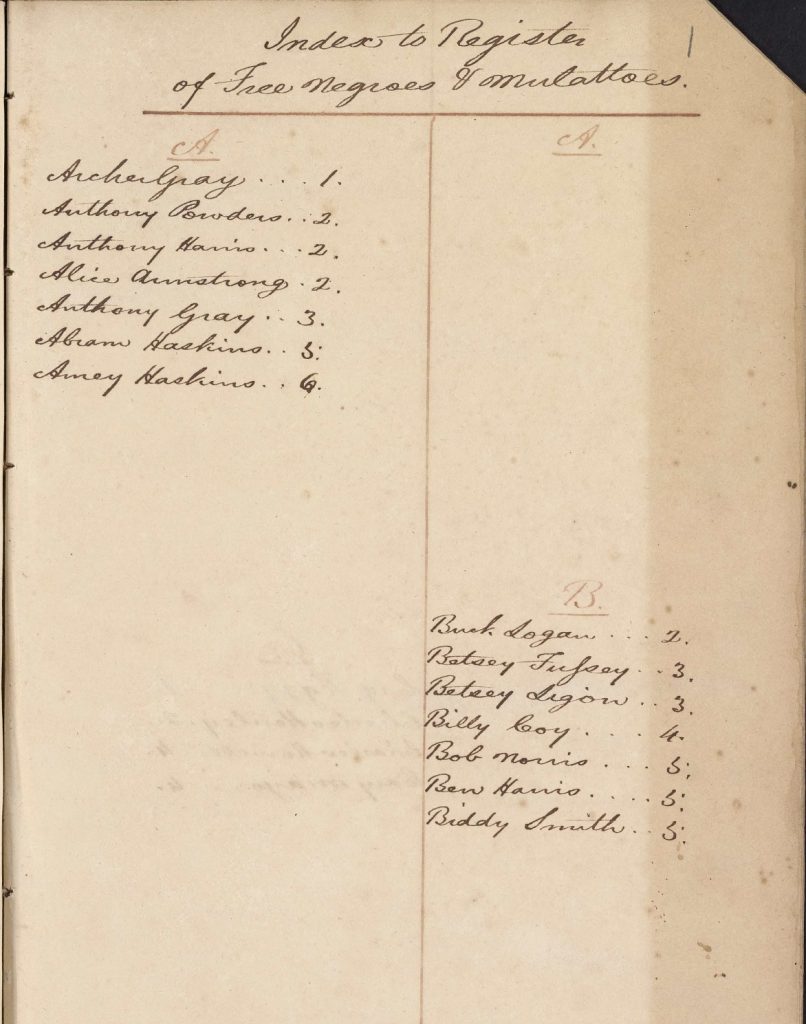 Index to Register
1
of Free Negroes & Mulattoes.
A.
Archer Gray . . . 1.
Anthony Powders . . 2.
Anthony Harris . . . 2.
Alice Armstrong . 2.
Anthony Gray . . 3.
Abram Haskins . . 5.
Amey Haskins . . 6.
A.
B.
Buck Logan . . . 2.
Betsey Fussey . . 3.
Betsey Ligon . . 3.
Billy Coy . . . . 4.
Bob Norris . . . 5.
Ben Harris . . . . 5.
Biddy Smith . . 5.